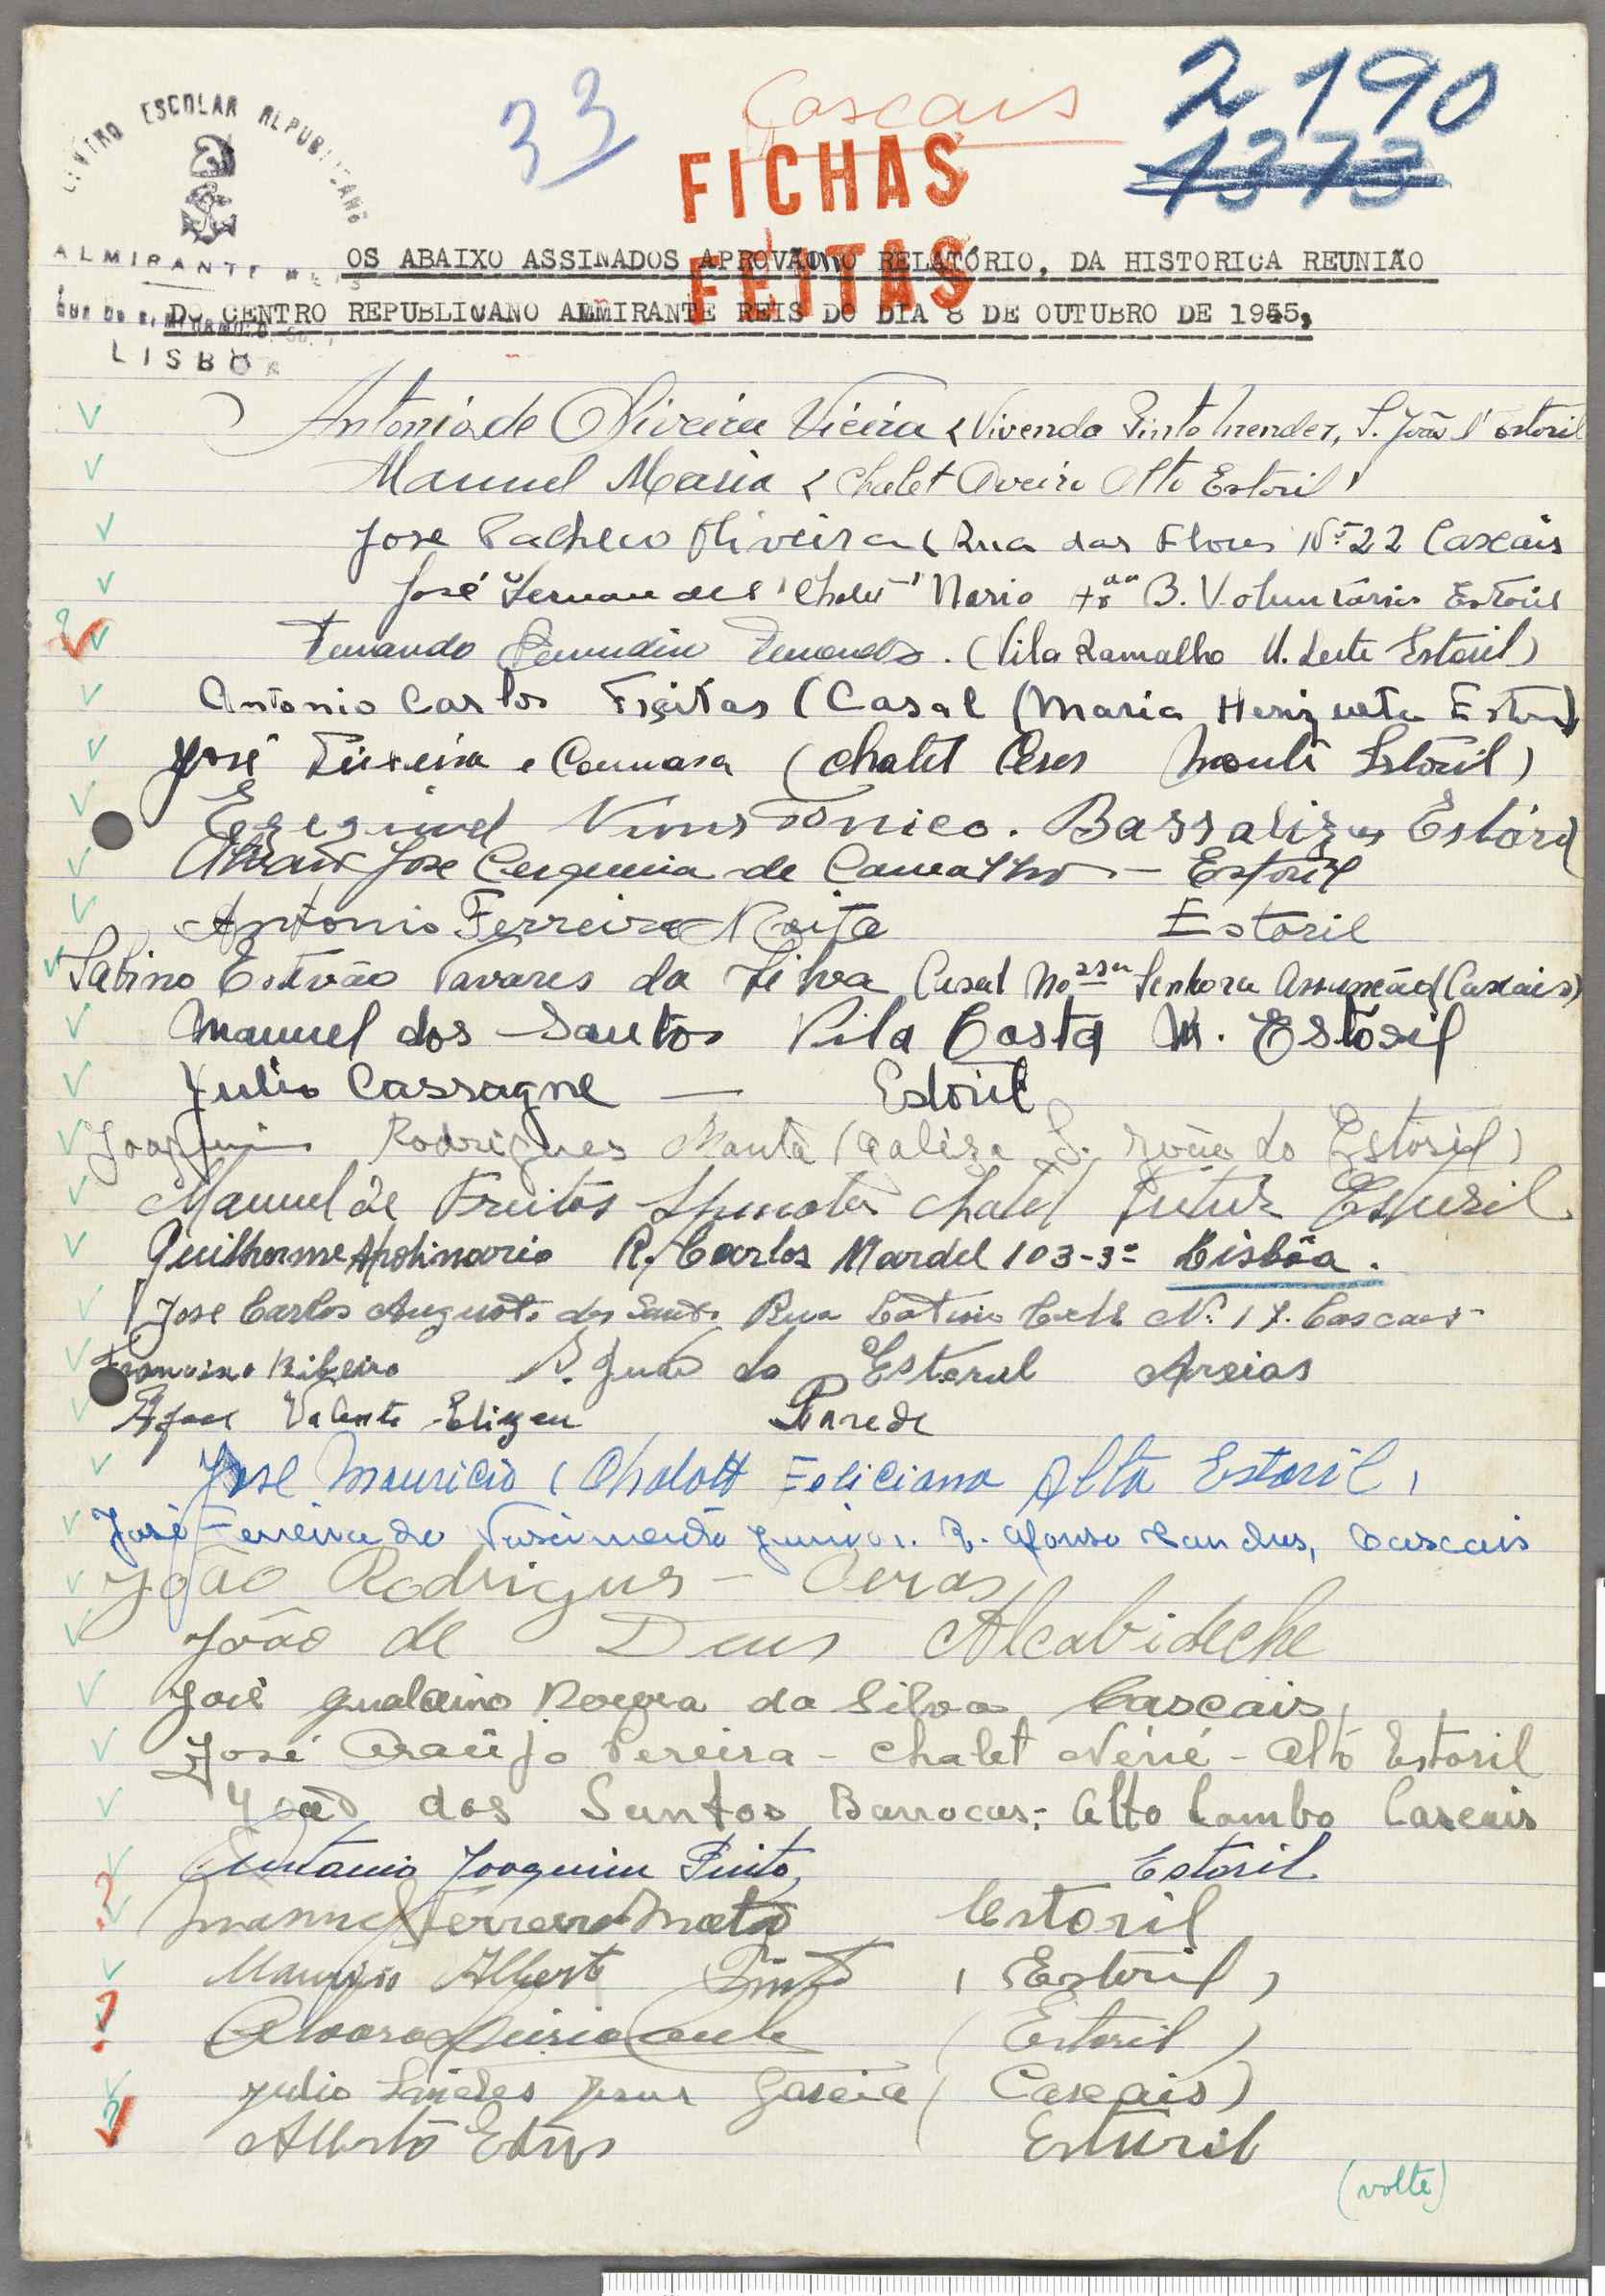 33
Cascais
2190
1373
CENTRO ESCOLAR REPUBLICANO
ALMIRANTE REIS
LISBOA
FICHAS
FEITAS
OS ABAIXO ASSINADOS APROVÃO O RELATÓRIO, DA HISTORICA REUNIÃO
DO CENTRO REPUBLICANO ALMIRANTE REIS DO DIA 8 DE OUTUBRO DE 1945,
Antonio de Oliveira Vieira (Vivenda Pinto Mendes, S. João d'Estoril
Manuel Maria (Chalet Aveiro Alto Estoril)
Jose Pacheco Oliveira (Rua das Flores Nº 22 Cascais
José Fernandes Chalet Mario B. Voluntários Estoril
Fernando Fernandes. (Vila Ramalho Estoril)
Antonio Carlos Freitas (Casal (Maria Henriqueta Estoril)
José Teixeira e Camara (Chalet Monte Estoril)
Ezequiel Nunes Tonico. Estóril
Alvaro Jose Cerqueira de Carvalho - Estoril
Antonio Ferreira Moita Estoril
Sabino Estevão Tavares da Silva Casal Nossa Senhora Assunção (Cascais)
Manuel dos Santos Vila Costa M. Estoril
Julio Cassagne — Estoril
Joaquim Rodrigues Manta (Galiza S. João do Estoril)
Manuel de Freitas Chalet Estoril
Guilherme Apolinario R. Carlos Mardel 103-3º Lisbôa.
Jose Carlos Augusto dos Santos Rua Nº 17. Cascaes
Francisco Ribeiro S. João do Estoril Areias
Valente Elizeu Parede
Jose Mauricio (Chalott Feliciana Alto Estoril)
José Ferreira do Nascimento Junior. R. Afonso Sanches, Cascais
João Rodrigues - Oeras
João de Deus Alcabideche
José Gualdino da Silva Cascais,
José Araújo Pereira - Chalet Néné - Alto Estoril
João dos Santos Barrocas - Alto Lombo Cascais
Antonio Joaquim Pinto, Estoril
Manuel Ferreira Mata Estoril
Mauricio Alberto Pinto (Estoril)
Alvaro (Estoril)
Julio Simões Jesus Garcia (Cascais)
Alberto Estoril
(volte)